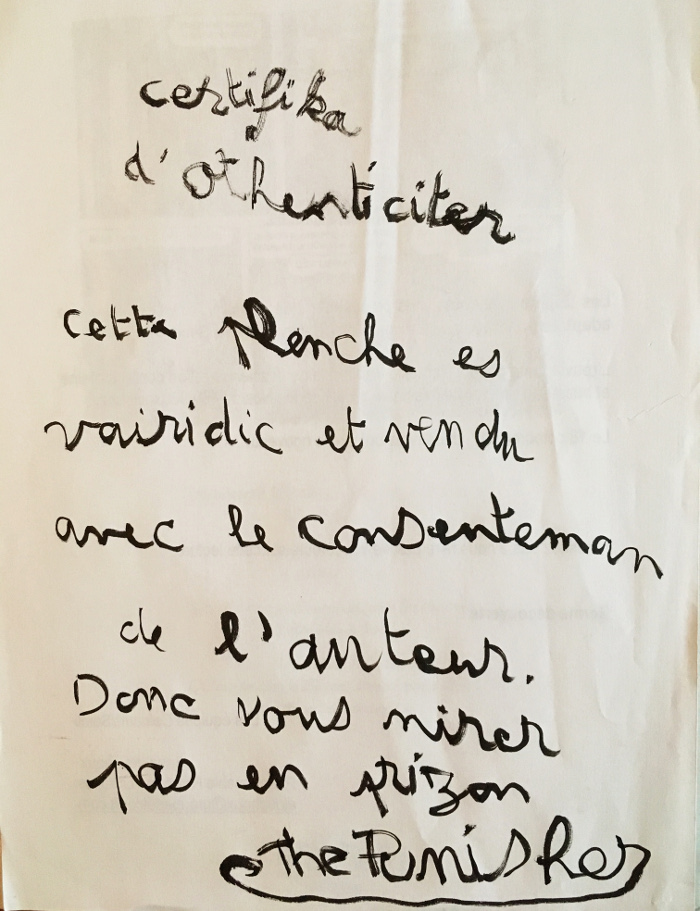 certifika
d'othenticiter
cette plenche es
vairidic et vendu
avec le consenteman
de l'auteur.
Donc vous nirer
pas en prizon
the Punisher